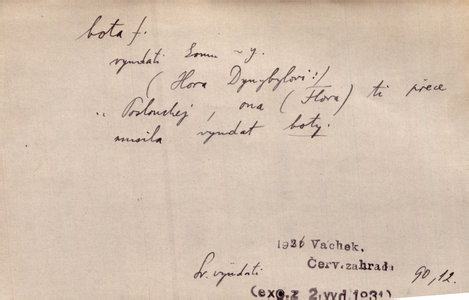 bota f.
vyndati komu ~ y.
(Hora Dynybylovi:)
„Poslouchej, ona (Flora) ti přece
musila vyndat boty.
1926 Vachek,
Červ.zahrada
Sv. vyndati 90,12.
(exc.z 2.vyd.1931)